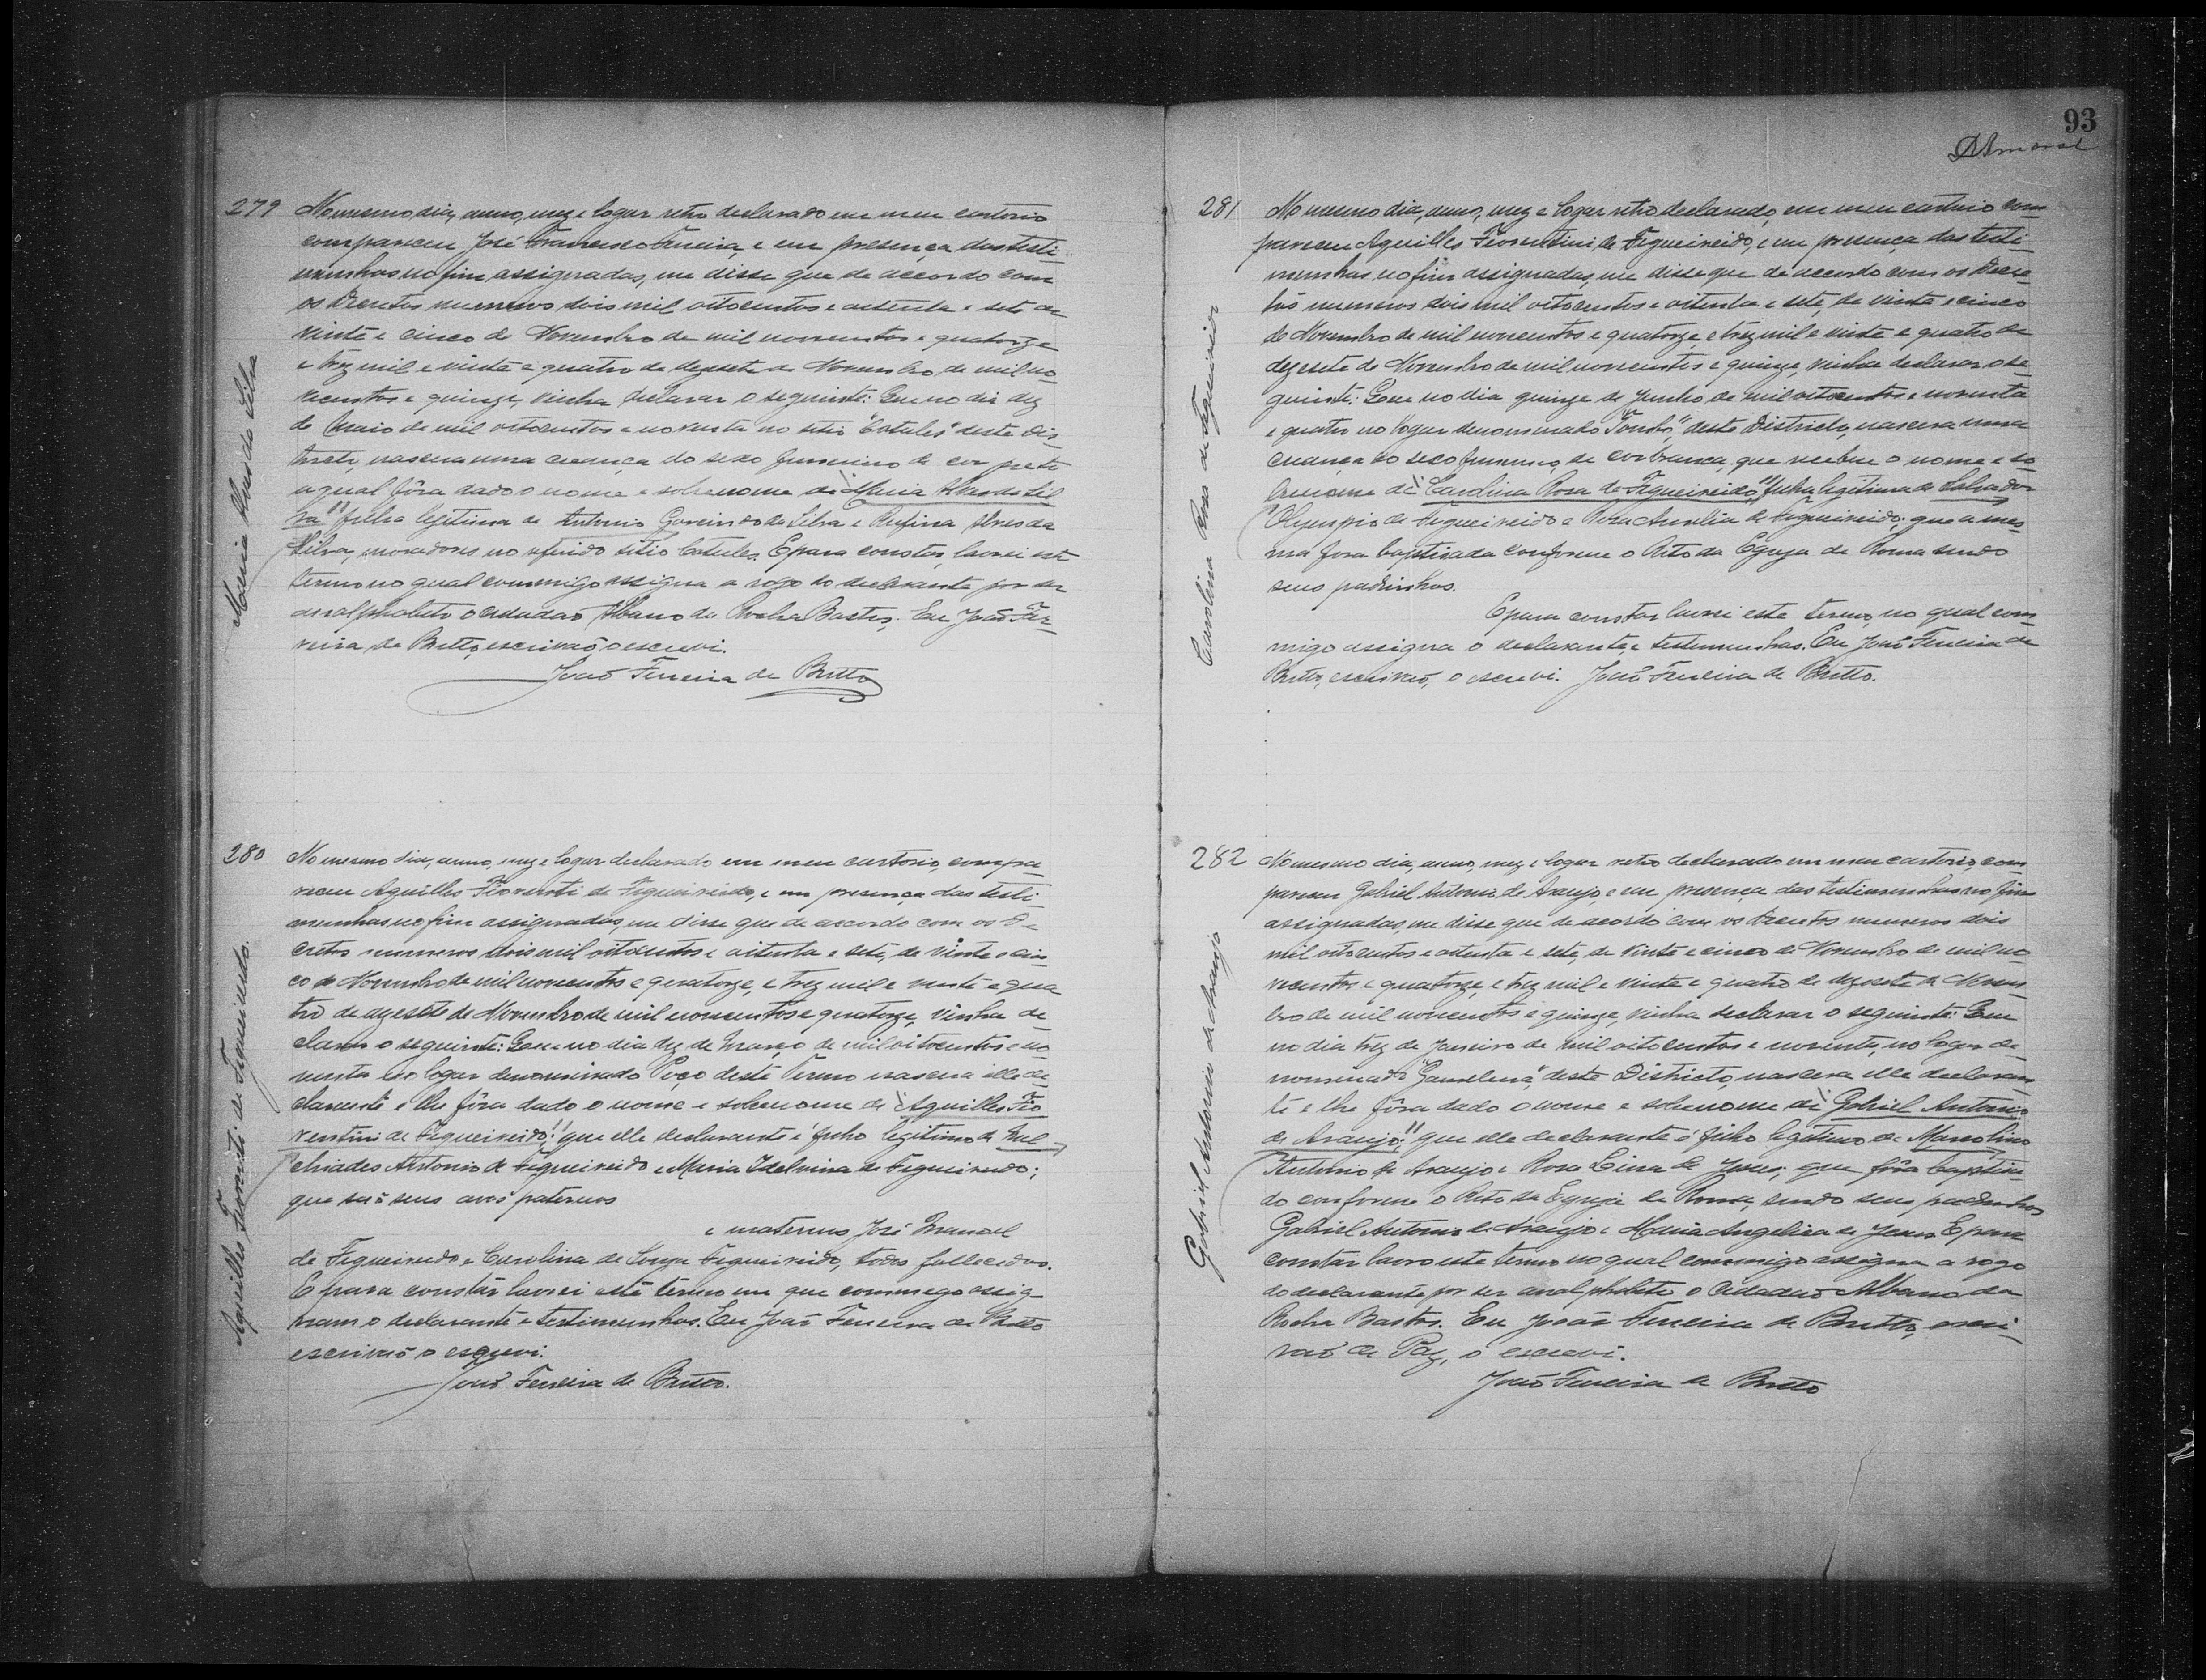 279
Maria Alves da Silva
No mesmo dia, anno, mez e logar retro declarado em meu cartorio
compareceu José Francisco Ferreira, e em presença das teste-
munhas no fim assignadas, me disse que de accordo com
os Decretos numeros dois mil oitocentos e oitenta e sete de
vinte e cinco de Novembro de mil novecentos e quatorze
e trez mil e vinte e quatro de dezesete de Novembro de mil no-
vecentos e quinze, vinha declarar o seguinte: Que no dia dez
de Maio de mil oitocentos e noventa no sitio "Catulés" deste Dis
tricto, nascera uma creança do sexo femenino de cor preta
a qual fôra dado o nome e sobrenome de "Maria Alves da Sil
va" filha legitima de Antonio da Silva e Rufina Alves da
Silva, moradores no referido sitio Catulés. E para constar, lavrei este
termo no qual commigo assigna a rogo do declarante por ser
analphabeto o cidadão Albano da Rocha Bastos. Eu João Fer-
reira de Britto, escrivão, o escrevi.
João Ferreira de Britto
280
Aquilles Fiorenti de Figueiredo.
No mesmo dia, anno, mez e logar declarado em meu cartorio, compa
receu Aquilles Fiorenti de Figueiredo, e em presença das teste-
munhas no fim assignadas, me disse que de accordo com os De
cretos numeros dois mil oitocentos e oitenta e sete, de vinte e cin-
co de Novembro de mil novecentos e quatorze, e trez mil e vinte e qua
tro de dezesete de Novembro de mil novecentos e quatorze, vinha de-
clarar o seguinte: Que no dia dez de Março de mil oitocentos e no-
venta no logar denominado Poço deste Termo nascera elle de-
clarante e lhe fôra dado o nome e sobrenome de "Aquilles Fio
rentini de Figueireido;" que elle declarante é filho legitimo de Mel
chiades Antonio de Figueireido e Maria Idelvina de Figueiredo;
que são seus avós paternos
e maternos José Manoel
de Figueiredo e Carolina de Souza Figueireido, todos fallecidos.
E para constar lavrei este termo em que commigo assig-
nam o declarante e testemunhas. Eu João Ferreira de Britto
escrivão o escrevi.
João Ferreira de Britto.
93
281
Carolina Rosa de Figueireido
No mesmo dia, anno, mez e logar retro declarado, em meu cartorio com-
pareceu Aquilles Fiorentini de Figueireido, e em presença das teste-
munhas no fim assignadas, me disse que de accordo com os Decre-
tos numeros dois mil oitocentos e oitenta e sete, de vinte e cinco
de Novembro de mil novecentos e quatorze, e trez mil e vinte e quatro de
dezesete de Novembro de mil novecentos e quinze, vinha declarar o se-
guinte: Que no dia quinze de Junho de mil oitocentos e noventa
e quatro no logar denominado deste Districto, nascera uma
creança do sexo femenino, de cor branca, que recebeu o nome e so
brenome de "Carolina Rosa de Figueireido," filha legitima de Salvador
Olympio de Figueireido e Rosa Aurelia de Figueireido; que a mes-
ma fora baptisada conforme o Rito da Egreja de Roma sendo
seus padrinhos.
E para constar lavrei este termo, no qual com-
migo assigna o declarante, e testemunhas. Eu João Ferreira de
Britto, escrivão, o escrevi. João Ferreira de Britto.
282
Gabriel Antonio de Araujo
No mesmo dia, anno, mez e logar retro declarado em meu cartorio, com
pareceu Gabriel Antonio de Araujo, e em presença das testemunhas no fim
assignadas, me disse que de acordo com os Decretos numeros dois
mil oitocentos e oitenta e sete, de vinte e cinco de Novembro de mil no-
vecentos e quatorze, e trez mil e vinte e quatro de dezesete de Novem-
bro de mil novecentos e quinze, vinha declarar o seguinte: Que
no dia trez de Janeiro de mil oitocentos e noventa, no logar de-
nominado "Gamelleira," deste Districto, nascera elle declaran-
te e lhe fôra dado o nome e sobrenome de "Gabriel Antonio
de Araujo;" que elle declarante é filho legitimo de Marcolino
Antonio de Araujo e Rosa Lina de Jesus; que fôra baptisa-
do conforme o Rito da Egreja de Roma, sendo seus padrinhos
Gabriel Antonio de Araujo e Maria Angelica de Jesus. E para
constar lavro este termo no qual commigo assigna a rogo
do declarante por ser analphabeto o Cidadão Albano da
Rocha Bastos. Eu João Ferreira de Britto, escri-
vão de Paz, o escrevi.
João Ferreira de Britto